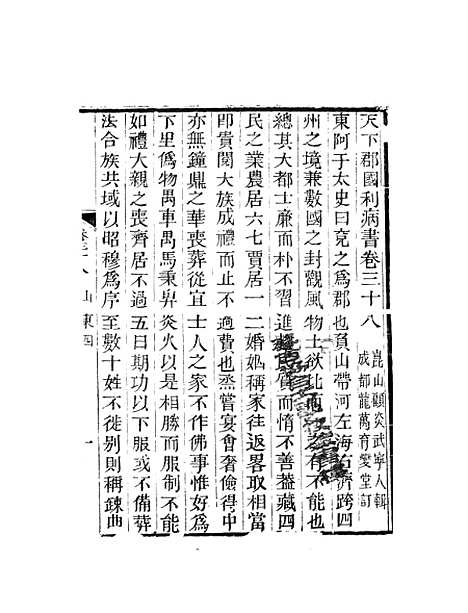 天下郡國利病書卷三十八
崑山顧炎武寧人輯
成都龍萬育燮堂訂
東阿于太史曰兗之為郡也負山帶河左海右濟跨四
州之境兼數國之封觀風物土欲比而之存不能也
總其大都士廉而朴不習進質而惰不善蓋藏四
民之業農居六七賈居一二婚婣稱家往返畧取相當
即貴閥大族成禮而止不過費也烝嘗宴會奢儉得中
亦無鐘鼎之華喪葬從宜士人之家不作佛事惟好爲
下里僞物禺車禺馬秉畀炎火以是相勝而服制不能
如禮大親之喪齊居不過五日期功以下服或不備葬
法合族共域以昭穆爲序至數十姓不徙别則稱鍊曲
山東四
一